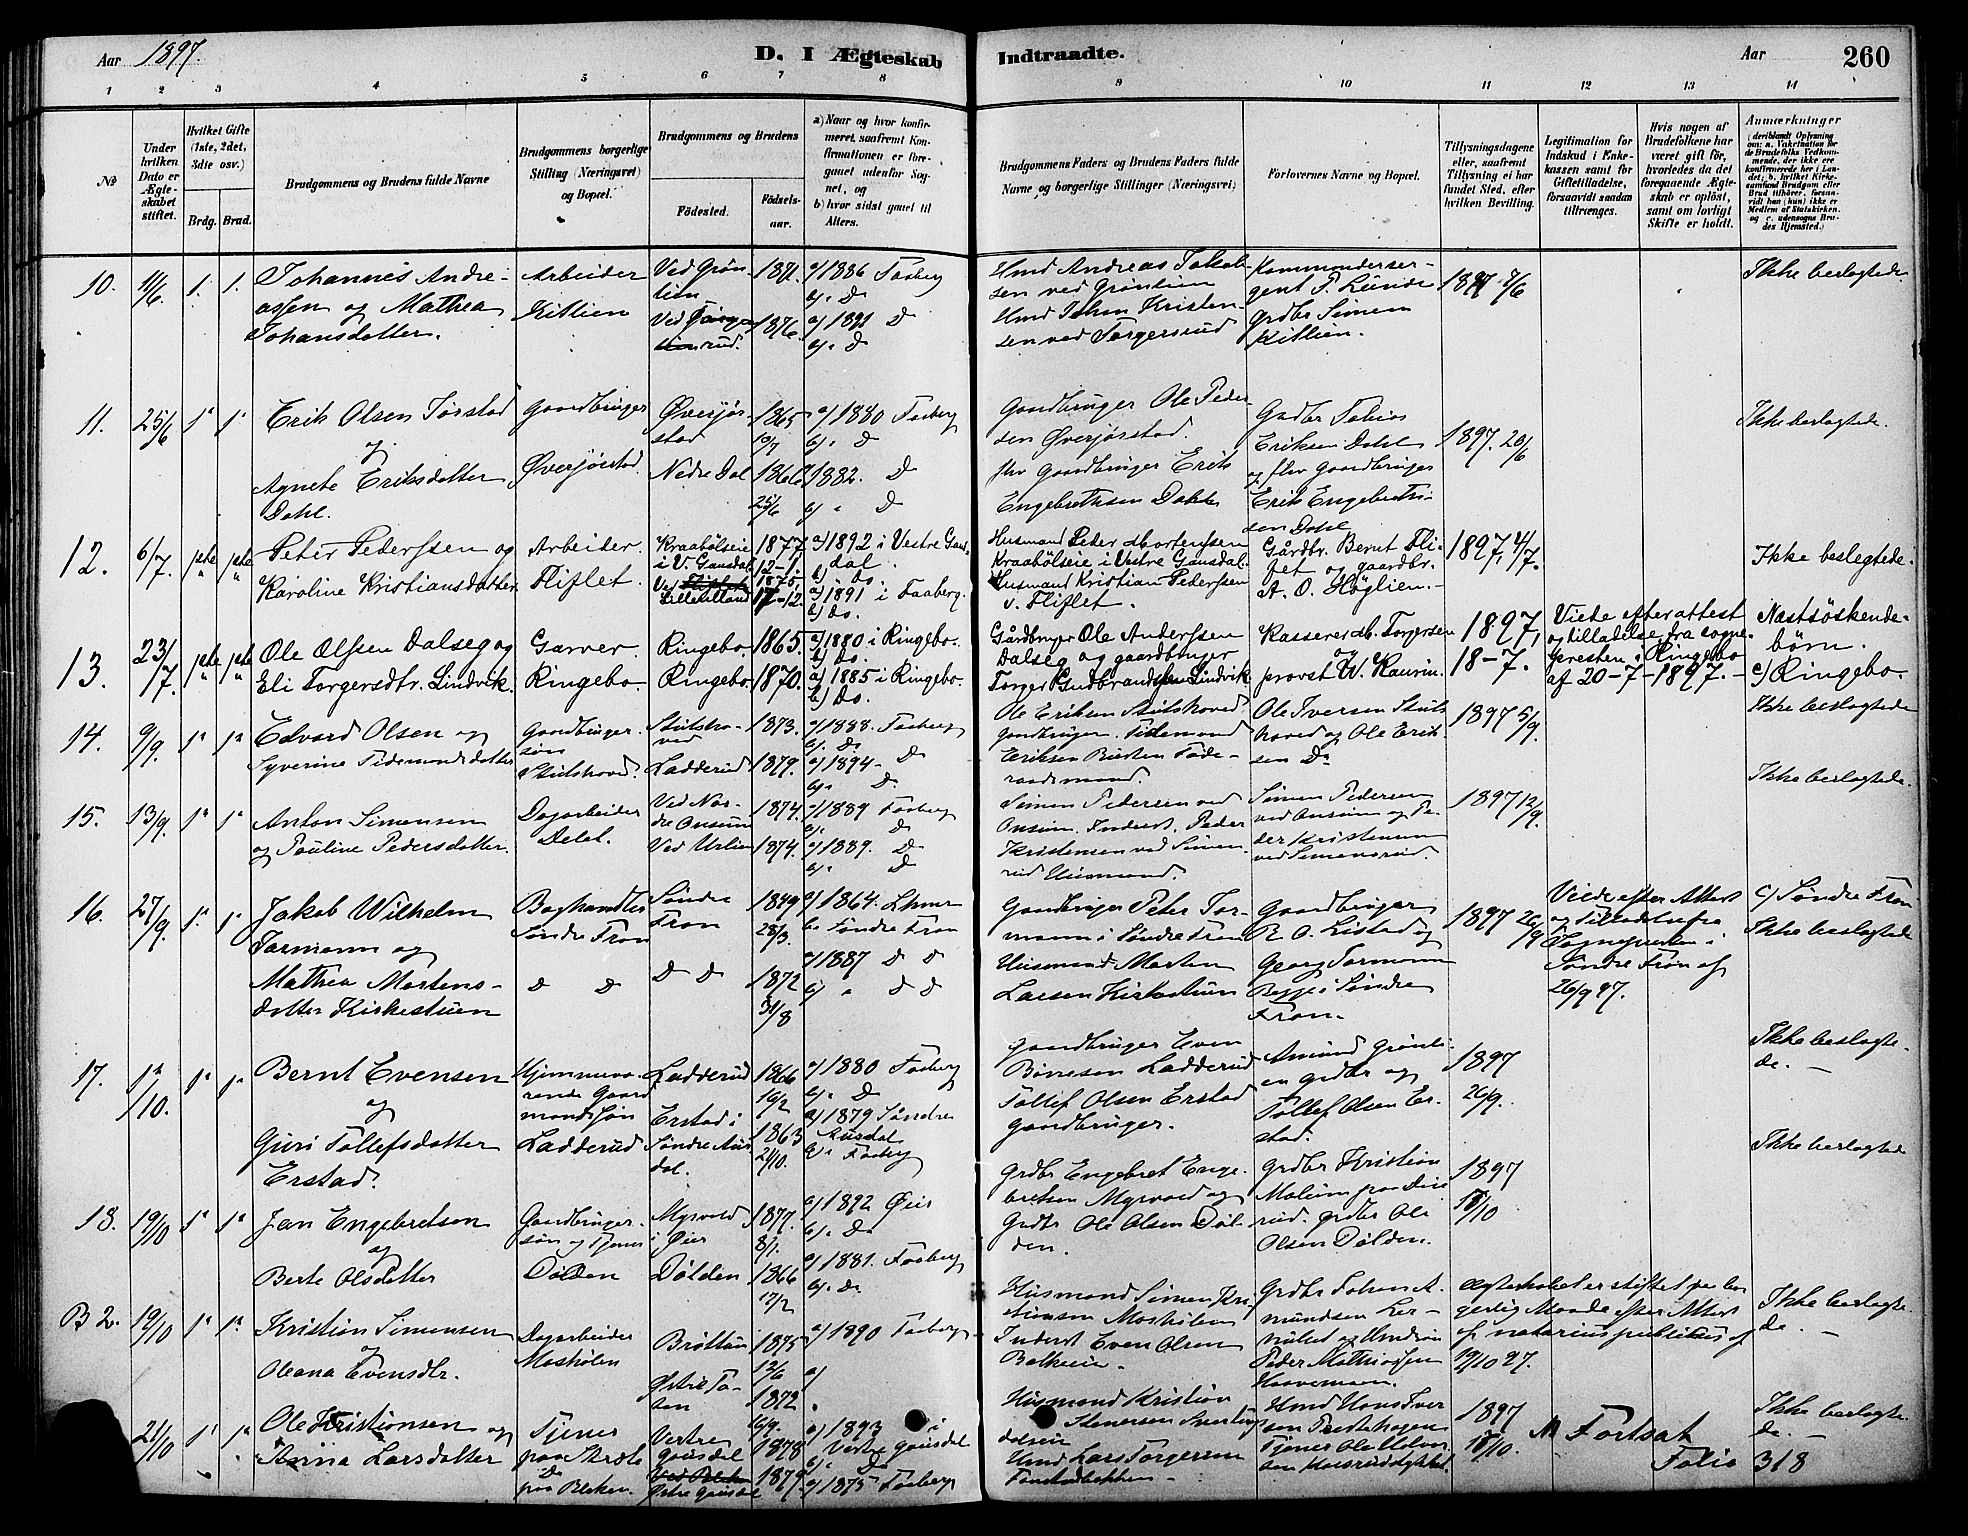 Aar 1897.
D. I Ægteskab Indtraadte.
Aar
260
1 2 3 4 5 6 7 8 9 10 11 12 13 14
№
Under hvilken Dato er Ægteskabet stiftet.
Hvilket Gifte (1ste, 2det, 3die osv.)
Brdg. Brud.
Brudgommens og Brudens fulde Navne
Brudgommens borgerlige Stilling (Næringsvei) og Bopæl.
Brudgommens og Brudens
Fødested.
Fødselsaar.
a) Naar og hvor konfirmeret, saafremt Konfirmationen er foregaaet udenfor Sognet, og
b) hvor sidst gaaet til Alters.
Brudgommens Faders og Brudens Faders fulde Navne og borgerlige Stillinger (Næringsvei)
Forlovernes Navne og Bopæl.
Tillysningsdagene eller, saafremt Tillysning ei har fundet Sted, efter hvilken Bevilling.
Legitimation for Indskud i Enkekassen samt for Giftetilladelse, forsaavidt saadan tiltrænges.
Hvis nogen af Brudefolkene har været gift før, hvorledes da det foregaaende Ægteskab er opløst, samt om lovligt Skifte er holdt.
Anmærkninger
10. 11/6 1. 1. Johannes Andreassen og Mathea Johansdatter.
Arbeider Kitlien
Ved Grønlien 1871.
1876.
a) 1886 Faaberg
b) . D
a) 1891 D
b) . D
Hmd Andreas Jakobsen ved Grønlien
Hmd Johan Kristensen ved Torgersrud
Kommandersergent P. Lunde
Grdbr Simen Kitlien.
Ikke beslægtede
11. 25/6 1ª 1ª Erik Olsen Jørstad
og
Agnete Eriksdatter Dahl.
Gaardbruger
Øverjørstad.
Øverjørstad 1865
Nedre Dal 1866
25/6
a) 1880 Faaberg
b) . D
a) 1882. D
b) " D
Gaardbruger Ole Pedersen Øverjørstad.
fhv Gaardbruger Erik Engebrethsen Dahl
Gadbr Tobias Eriksen Dahl
og fhv Gaardbruger Erik Engebrethsen Dahl
1897. 20/6
Ikke beslægtede.
12. 6/7. 1ste 1ste Peter Pederssen og
Karoline Kristiansdatter.
Arbeider.
Fliflet.
Kraabølseie i V. Gausdal 1877 12-1.
Lillehaland 1875. 17-12.
a) 1892 i Vestre Gausdal.
b) Do.
a) 1891 i Faaberg.
b) Do.
Husmand Peder Mortenssen Kraabølseie i Vestre Gausdal.
Husmand Kristian Pederssen v. Fliflet.
Gårdbr. Bernt Fliflet og gaardbr. A. O. Høglien.
1897, 4/7.
Ikke beslegtede.
13. 23/7. 1ste 1ste Ole Olssen Dalseg og
Eli Torgersdtr. Lindvik.
Garver.
Ringebo.
Ringebo. 1865.
Ringebo. 1870.
a) 1880 i Ringebo.
b) Do.
a) 1885 i Ringebo.
b) Do.
Gårdbruger Ole Anderssen Dalseg og gaardbruger Torger Gudbrandssen Lindvik
Kasserer M. Torgersen og provst W. Kaurin.
1897, 18-7.
Viede efter attest og tilladelse fra sognepresten i Ringebo af 20-7-1897.
Næstsøskendebørn.
c) Ringebo.
14. 9/9. 1ª 1ª Edvard Olsen og
Syverine Tidemandsdatter
Gaardbrugersøn
Stulshoved.
Stulshoved 1873.
Ladderud 1879.
a) 1888. Faaberg
b) D
a) 1894 - D
b) . D.
Ole Eriksen Stulshoved gaardbruger. Tidemand Eriksen Føderaadsmand.
Ole Iversen Stulshoved og Ole Eriksen D.
1897 5/9.
Ikke beslægtede
15. 13/9. 1ª 1ª Anton Simensen
og Pauline Pedersdatter.
Dagarbeider
Ved Nordre Onsum 1874.
1874.
a) 1889 Faaberg
b) . D
a) 1889. D
b) . D
Simen Pedersen ved Onsum. Inderst. Peder Kristensen ved Simensrud Husmand.
Simen Pedersen ved Onsum og Peder Kristensen ved Simensrud.
1897 12/9.
Ikke beslægtede.
16. 27/9. 1ª 1ª Jakob Wilhelm Tarmann og
Mathea Mortensdatter Kirkestuen
Boghandler
Søndre Fron
D D
Søndre Fron
D D
1849
28/3.
1872
31/8
a) 1864.
b. Søndre Fron
a) 1887 D D
b) " D D
Gaardbruger Peter Tarmann i Søndre Fron
Husmand Morten Larsen Kirkestuen
Gaardbruger R. O. Listad og Georg Tarmann Begge i Søndre Fron.
1897 26/9
Viede efter Attest og Tilladelse fra Sognepresten i Søndre Fron af 26/9 97.
c) Søndre Fron
Ikke beslægtede
17. 1/10. 1ª 1ª Bernt Evensen
og
Guri Tollefsdatter Erstad.
Hjemmeværende Gaardmandssøn
Ladderud
Ladderud 1866
16/2
Erstad i Søndre Ausdal. 1863
21/10.
a) 1880 Faaberg
b) . D
a) 1879 Søndre Ausdal
b) . Faaberg
Gaardbruger Even Ladderud
Tollef Olsen Erstad gaardbruger.
Amund Grønlien grdbr og Tollef Olsen Erstad.
1897
26/9.
Ikke beslægtede.
18. 19/10 1ª 1ª Jan Engebretsen
og
Berte Olsdatter
Gaardbrugersøn og Tjener
Dølden
Myrvold i Øier 1877.
8/1.
Dølden 1866
17/2
a) 1892 Øier
b) . D
a) 1881. Faaberg
b) . D.
Grdbr Engebret Engebretsen Myrvold og Grdbr Ole Olsen Dølden.
Grdbr Kristian
Grdbr Ole Olsen Dølden.
1897
Ikke beslægtede
B 2. 19/10 1ª 1ª Kristian Simensen
og
Oleana Evensdtr.
Dagarbeider
Moshølen
Brøttum 1875
12/6
1872
6/9.
a) 1890 Faaberg
a)
Husmand Simen Kristiansen Moshølen
Inderst Even Olsen
Ægteskabet er stiftet paa borgerlig Maade efter Attest af notarius publicus af 19/10 97.
Ikke beslægtede.
21/10 1ª 1ª Ole Kristiansen og
Anna Larsdatter
Tjener
Vestre Gausdal 1878
Østre Gausdal 1879.
a) 1893 i Vestre Gausdal
b) . D
a) 1875 Faaberg
Husmand Kristian
Hmd Lars Torgersen
Hmd Hans Iversen
1897
Ikke beslægtede.
Fortsat
Folio 318